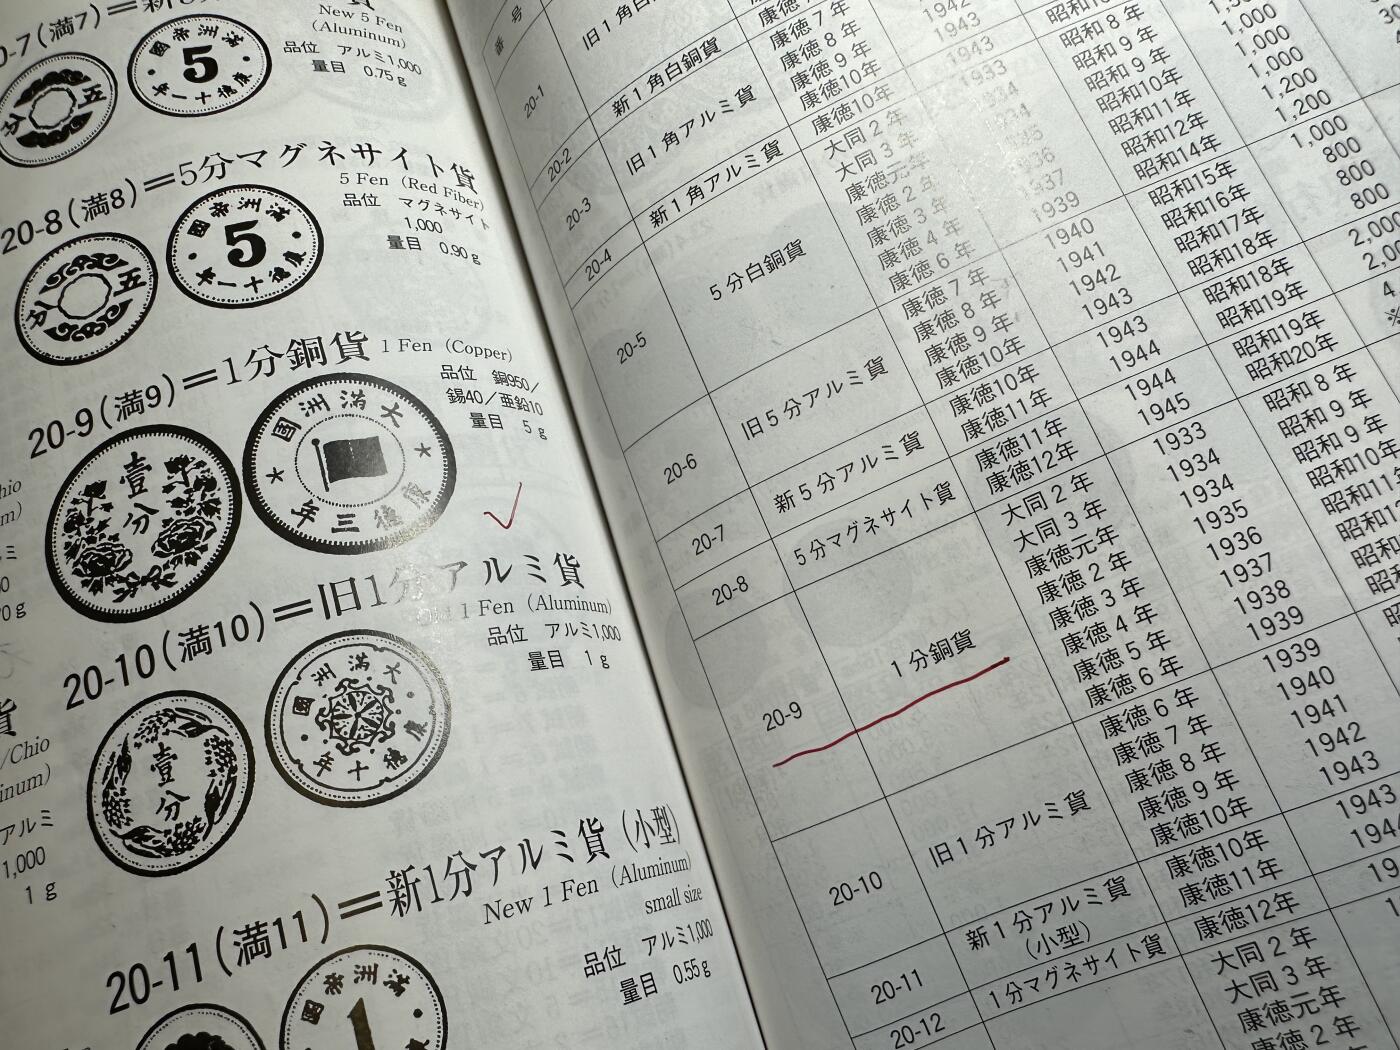 0-7(満7)=新
貨
New 5 Fen
(Aluminum)
品位 アルミ1,000
量目 0.75g
五
分
満洲帝國
5
康徳十一年
20-8(満8)=5分マグネサイト貨
5 Fen (Red Fiber)
品位 マグネサイト
1,000
量目 0.90g
五
分
満洲帝國
5
康徳十一年
20-9(満9)=1分銅貨 1 Fen (Copper)
品位 銅950/
錫40/亜鉛10
量目 5g
壹
分
大満洲國
康徳三年
20-10(満10)=旧1分アルミ貨
Old 1 Fen (Aluminum)
品位 アルミ1,000
量目 1g
壹
分
大満洲國
康徳十年
20-11(満11)=新1分アルミ貨(小型)
New 1 Fen (Aluminum)
small size
品位 アルミ1,000
量目 0.55g
満洲帝國
1
chio
m)
ミ
0
0g
貨
/Chio
inum)
アルミ
1,000
1g
番号
20-1
旧1角白
康徳7年
1942
20-2
新1角白銅貨
康徳7年
康徳8年
康徳9年
康徳10年
1943
20-3
旧1角アルミ貨
20-4
新1角アルミ貨
康徳10年
1943
20-5
5分白銅貨
大同2年 1933 昭和8年 1,000
大同3年 1934 昭和9年 1,000
康徳元年 1934 昭和9年 1,000
康徳2年 1935 昭和10年 1,200
康徳3年 1936 昭和11年 1,200
康徳4年 1937 昭和12年 1,000
康徳6年 1939 昭和14年 800
20-6
旧5分アルミ貨
康徳7年 1940 昭和15年 800
康徳8年 1941 昭和16年 800
康徳9年 1942 昭和17年
康徳10年 1943 昭和18年
20-7
新5分アルミ貨
康徳10年 1943 昭和18年
康徳11年 1944 昭和19年
20-8
5分マグネサイト貨
康徳11年 1944 昭和19年
康徳12年 1945 昭和20年
20-9
1分銅貨
大同2年 1933 昭和8年
大同3年 1934 昭和9年
康徳元年 1934 昭和9年
康徳2年 1935 昭和10年
康徳3年 1936
康徳4年 1937
康徳5年 1938
康徳6年 1939
20-10
旧1分アルミ貨
康徳6年 1939
康徳7年 1940
康徳8年 1941
康徳9年 1942
康徳10年 1943
20-11
新1分アルミ貨
(小型)
康徳10年 1943
康徳11年
20-12
1分マグネサイト貨
康徳12年
大同2年
大同3年
康徳元年
康徳2年